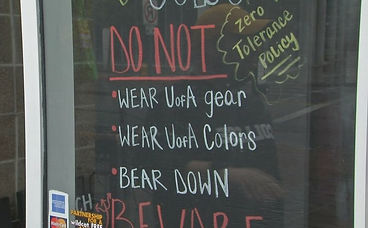 DO NOT
zero
Tolerance
Policy
•WEAR UofA gear
•WEAR UofA Colors
•BEAR DOWN
BEWARE
PARTNERSHIP
FOR A
wildcat FREE